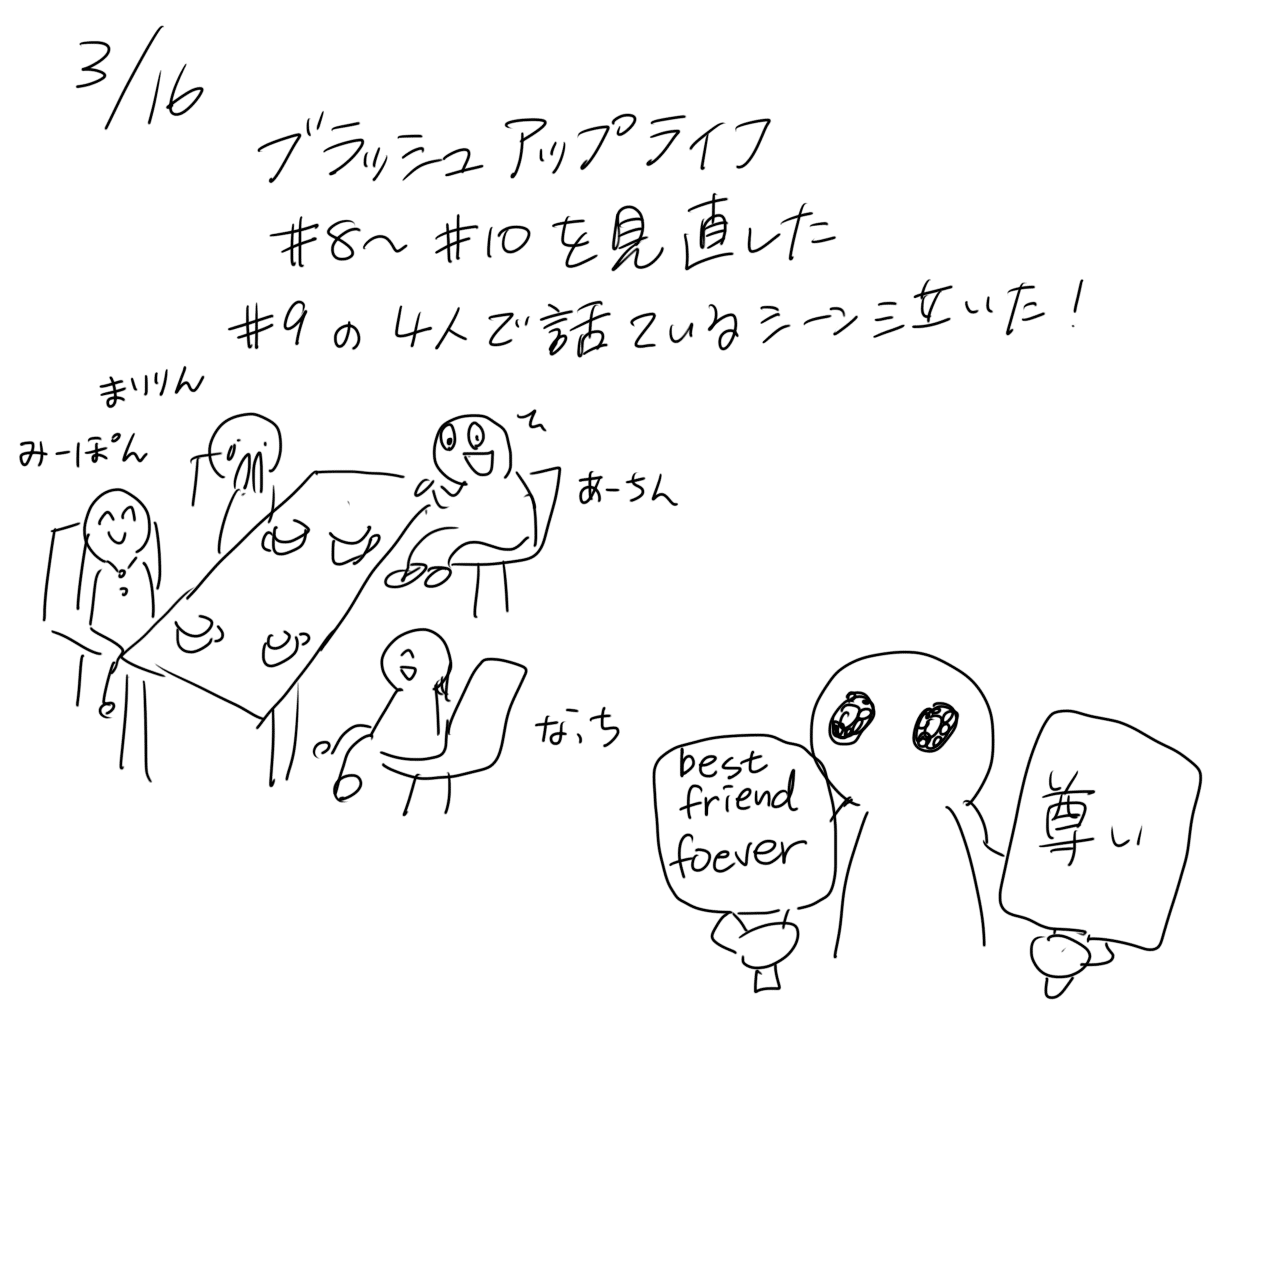 3/16
ブラッシュアップライフ
#8〜#10を見直した
#9の4人で話ているシーン泣いた!
まりりん
みーぽん
あーちん
なっち
best
friend
foever
尊い